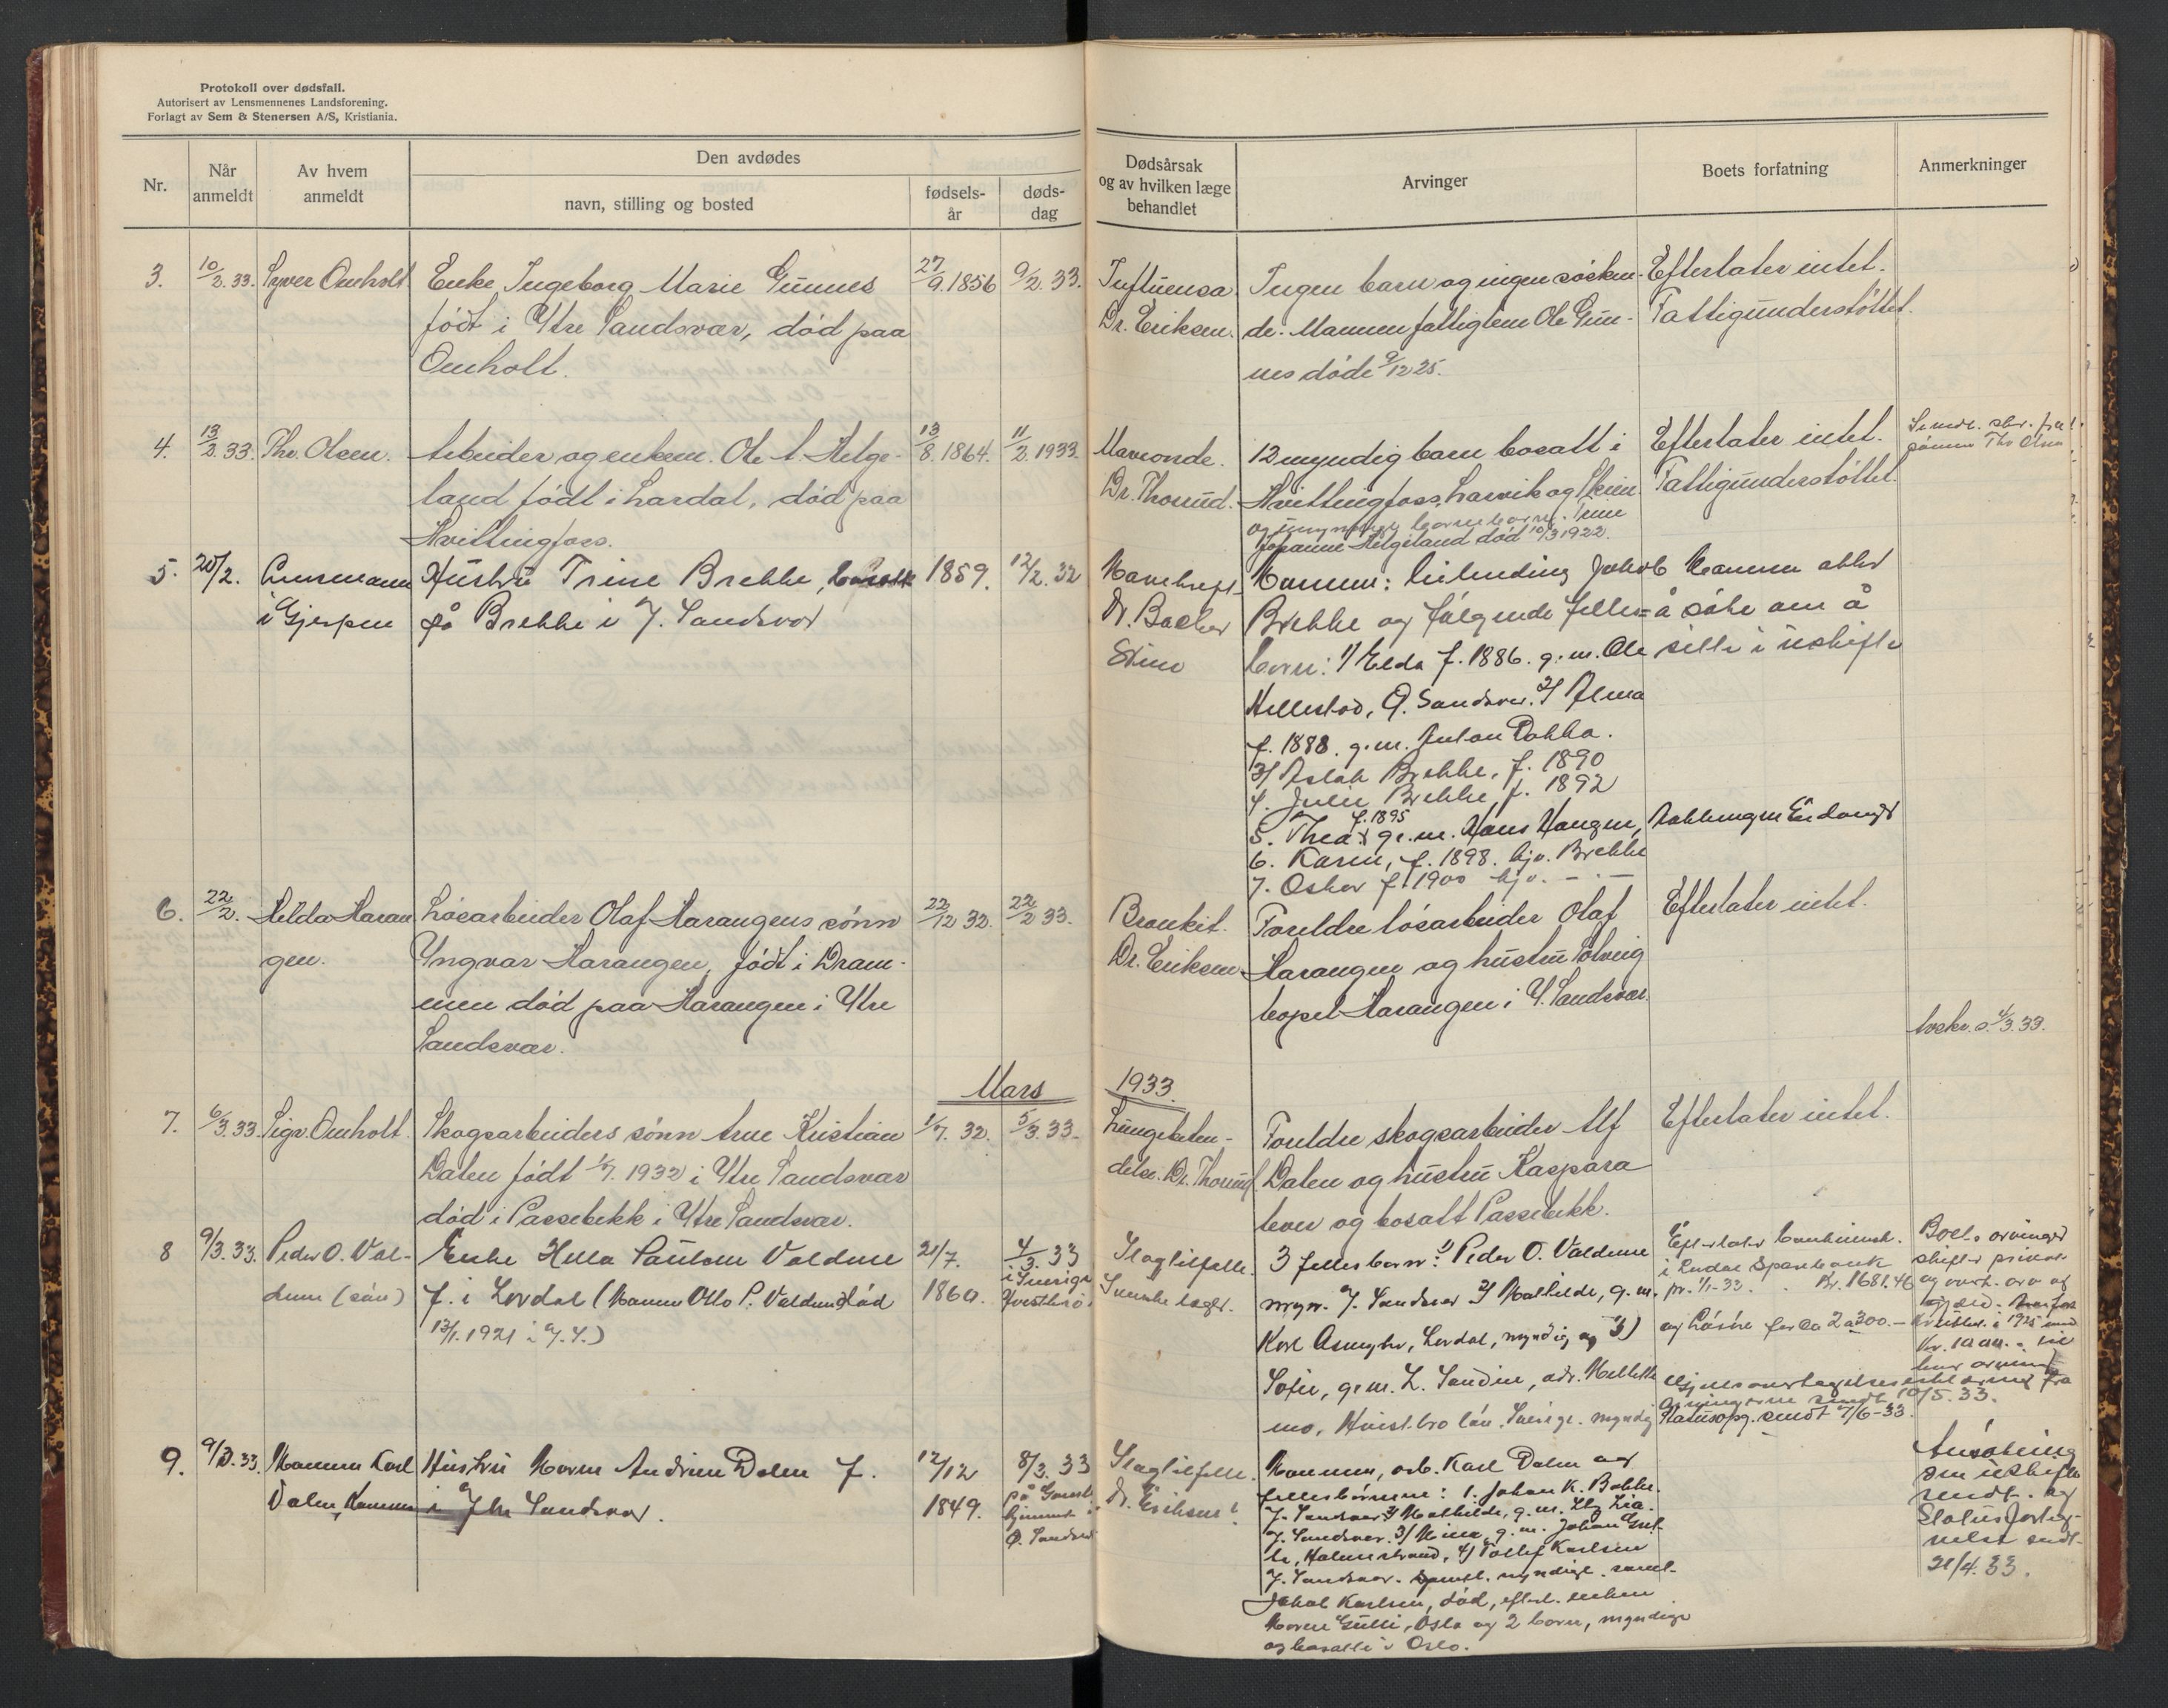 Protokoll over dødsfall.
Autorisert av Lensmennenes Landsforening.
Forlagt av Sem & Stenersen A/S, Kristiania.
Nr.
Når anmeldt
Av hvem anmeldt
Den avdødes
navn, stilling og bosted
fødsels-år
døds-dag
Dødsårsak og av hvilken læge behandlet
Arvinger
Boets forfatning
Anmerkninger
3. 10/2.33. Syver Omholt
Enke Ingeborg Marie Gunnes
født i Ytre Sandsvær, død paa
Omholt.
27/9.1856 9/2.33.
Influensa
Dr. Eriksen.
Ingen barn og ingen søsken-
de. Mannen fattiglem Ole Gun-
nes døde 9/12 25.
Efterlater intet.
Fattigunderstøttet.
4. 13/2.33. Thv. Olsen.
Arbeider og enkem. Ole A. Helge-
land født i Lardal, død paa
Hvittingfoss.
13/8.1864. 11/2.1933.
Dr. Thorrud.
12 myndig barn bosatt i
Hvittingfoss, Larvik og Skien
og umyndig barnebarn.
Johanne Helgeland død 10/3 1922.
Efterlater intet.
Fattigunderstøttet.
sønnen Thv Olsen
5. 20/2. Lensmann
i Gjerpen
Hustru Trine Brekke, bosatt
på Brekke i Y. Sandsvær
1859. 12/2.32
Dr. Backer
Mannen: Jakob
Brekke og følgende felles=
barn: 1/ Elda f. 1886. g.m. Ole
Hellestad, Ø. Sandsvær. 2/ Alma
f. 1888. g.m. Anton Dokka.
3/ Aslak Brekke, f. 1890
4. Julie Brekke, f. 1892
f. 1895
5. Thea g.m. Hans Haugen,
6. Karen, f. 1898. hjv. Brekke
7. Oskar f. 1900 hjv. - - -
Mannen akter
å søke om å
sitte i uskifte
6. 22/2. Helda Haran
gen.
Løsarbeider Olaf Harangens sønn
Yngvar Harangen, født i Dram-
men død paa Harangen i Ytre
Sandsvær.
22/12 32. 22/2 33.
Bronkit.
Dr. Eriksen
Foreldre løsarbeider Olaf
Harangen og hustru Solveig
bopel Harangen i Y. Sandsvær.
Efterlater intet.
4/3.33.
Mars 1933.
7. 6/3.33. Sigv. Omholt.
Skogsarbeiders sønn Arne Kristian
Dalen født 1/7. 1932 i Ytre Sandsvær
død i Passebekk i Ytre Sandsvær.
1/7. 32. 5/3.33.
Lungebeten-
delse. Dr. Thorrud.
Foreldre skogsarbeider Alf
Dalen og hustru Kaspara
lever og bosatt Passebekk.
Efterlater intet.
8 9/3.33. Peder O. Val-
dum (søn)
Enke Hella Paulsen Valdum
f. i Lardal (Mannen Otto P. Valdum død
13/1. 1921 i Y.S.)
21/7. 1860. 4/3.33
i Sverige
Slagtilfelle.
Svenske læger.
3 fellesbarn: 1/ Peder O. Valdum
myn. Y. Sandsvær 2/ Mathilde, g.m.
Karl Lardal, myndig og 3)
Sofie, g.m. L. Sandin,
Sverige. myndig
Efterlater bankinnsk.
i Lardal Sparebank
pr. 1/1-33. Kr. 1681.46
og løsøre for ca 2 a 300.-
Statusopg. sendt 7/6-33.
10/5.33.
9. 9/3.33. Mannen Karl
Dalen,
Hustru Maren Andrine Dalen f.
i Ytre Sandsvær.
12/12 1849. 8/3.33
på
Ø. Sandsvær
Slagtilfelle.
Dr. Eriksen
Mannen, arb. Karl Dalen og
fellesbørnene: 1. Johan K. Bakke.
Y. Sandsvær 2/ Mathilde, g.m. Lia.
Y. Sandsvær. 3/ g.m. Johan
Holmestrand, 4/ Karlsen
Y. Sandsvær. myndige. samt
Jakob Karlsen, død, efterl. enken
Maren Gulli, Oslo og 2 barn, myndige
og bosatte i Oslo.
Ansøkning
om uskifte
sendt. og
Statusforteg-
nelse sendt.
21/4.33.